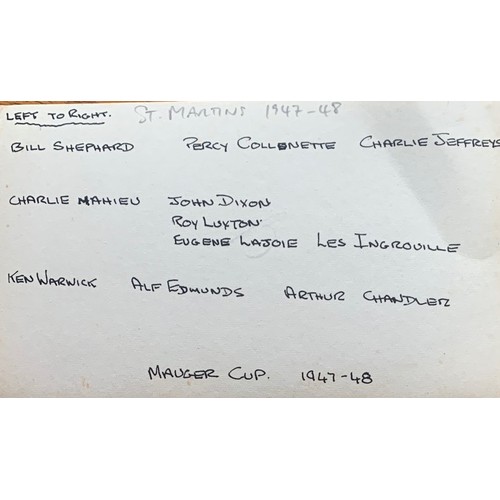 LEFT TO RIGHT. ST. MARTINS 1947-48
BILL SHEPHARD PERCY COLLENETTE CHARLIE JEFFREYS
CHARLIE MAHIEU JOHN DIXON
ROY LUXTON.
EUGENE LAJOIE LES INGROUILLE
KEN WARWICK ALF EDMUNDS ARTHUR CHANDLER
MAUGER CUP. 1947-48